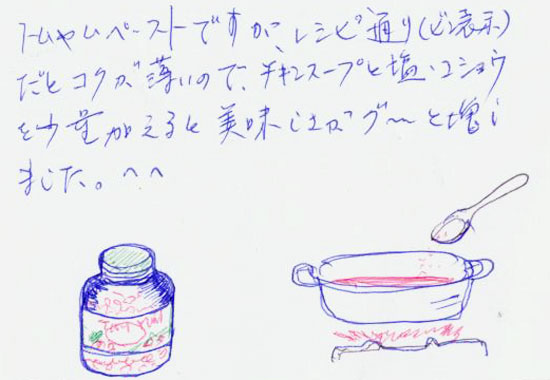 トムヤムペーストですが、レシピ通り(ビン表示)
だとコクが薄いので、チキンスープと塩・コショウ
を少量加えると美味しさがグ〜と増し
ました。^^